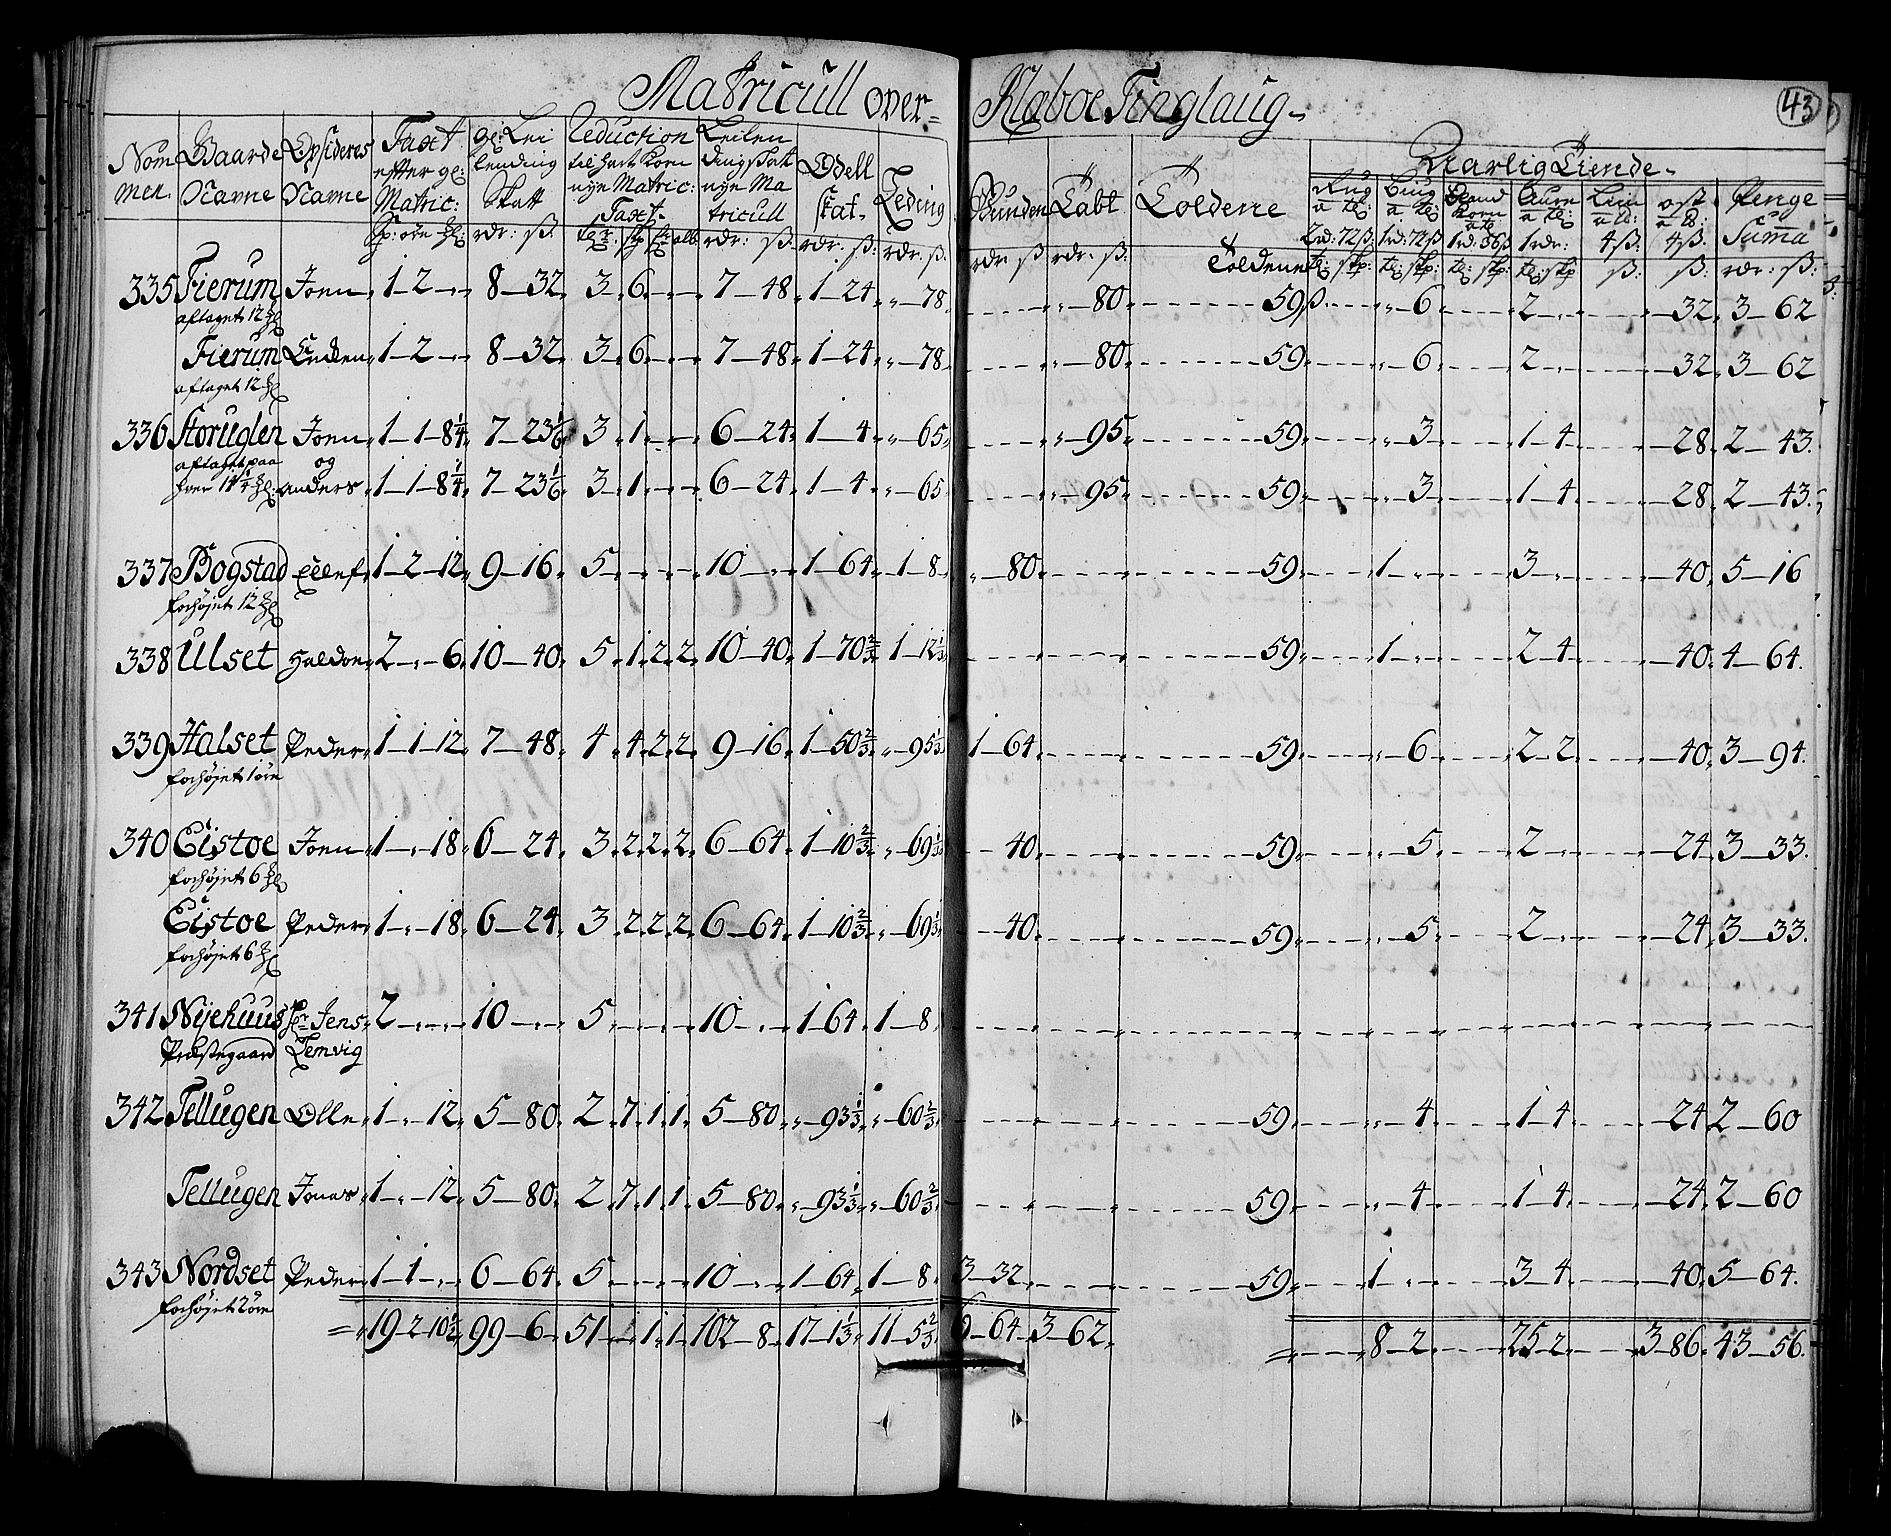 Matricull over= Klaboe Tinglaug-
43
Nom men Gaarde Nafne Opsideres Nafne Taxt effter gl: Matric: gl: Lei lending Skatt Reduction til hart Korn nye Matric: Taxt Leilen dingskatt nye Ma tricull Odell skat Leding Bunden Labt Toldene Aarlig Tiende-
Rug a te: 2rd: 72ß Biug a te: 1rd: 72ß Bland Korn a te 1rd: 36ß Aure a te: 1rdr: Liin a ld: 4ß: ost a ld: 4ß: Penge Summa
335 Fierum Joen 1-2-" 8-32 3 6 7-48 1-24 "-78 "-80 59ß 6 2 32 3-62
aftaget 12 gl
Fierum Endten 1-2-" 8-32 3 6 7-48 1-24 "-78 "-80 59 6 2 32 3-62
aftaget 12 gl
336 Storuglen Joen 1-1-8¼ 7-23⅙ 3 1 6-24 1-4 "-65 "-95 59 3 1-4 28 2-43
aftaget paa og
hver 14¼ gl: anders 1-1-8¼ 7-23⅙ 3 1 6-24 1-4 "-65 "-95 59 3 1-4 28 2-43
337 Bogstad Ellef 1-2-12 9-16 5 10 1-64 1-8 "-80 59 1 3 40 5-16
forhøjet 12 gl
338 Ulset Haldor 2-"-6 10-40 5 1 2 2 10-40 1-70⅔ 1-12⅓ 59 1 2-4 40 4-64
339 Halset Peder 1-1-12 7-48 4 4 2 2 9-16 1-50⅔ "-95⅓ 1-64 59 6 2-2 40 3-94
forhøjet 1 øre
340 Eistoe Joen 1-"-18 6-24 3 2 2 2 6-64 1-10⅔ "-69⅓ -40 59 5 2 24 3-33
forhøjet 6 gl
Eistoe Peder 1-"-18 6-24 3 2 2 2 6-64 1-10⅔ "-69⅓ -40 59 5 2 24 3-33
forhøjet 6 gl
341 Nijehuus Hr Jens 2 10 5 10 1-64 1-8
Præstegaard Lemvig
342 Tellugen Olle 1-"-12 5-80 2 7 1 1 5-80 "-93⅓ "-60⅔ 59 4 1-4 24 2-60
Tellugen Jonas 1-"-12 5-80 2 7 1 1 5-80 "-93⅓ "-60⅔ 59 4 1-4 24 2-60
343 Nordset Peder 1-1-" 6-64 5 10 1-64 1-8 3-32 59 1 3-4 40 5-64
forhøjet 2 øre
19-2-10½ 99-6 51 " 1 1 102-8 17-1⅓ 11-5⅔ 6-64 3-62 8-2 25-2 3-86 43-56